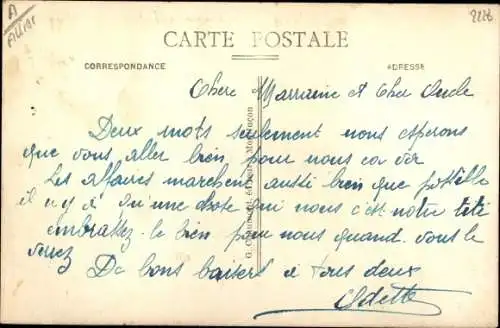 A
Allier
2226
CARTE POSTALE
CORRESPONDANCE
ADRESSE
Chere Marraine et Cher Oncle
Deux mots seulement nous esperons
que vous aller bien pour nous ca va
Les affaires marchent aussi bien que possible
il n'y a qu'une chose qui nous c'est notre titi
embrassez le bien pour nous quand vous le
verrez
De bons baisers a tous deux
Odette
G. Chaumont, éditeur, Montluçon